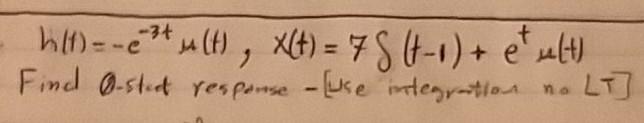 h(t) = -e^{-3t} u(t), x(t) = 7 δ (t-1) + e^t u(-t)
Find 0-state response - [Use integration no LT]